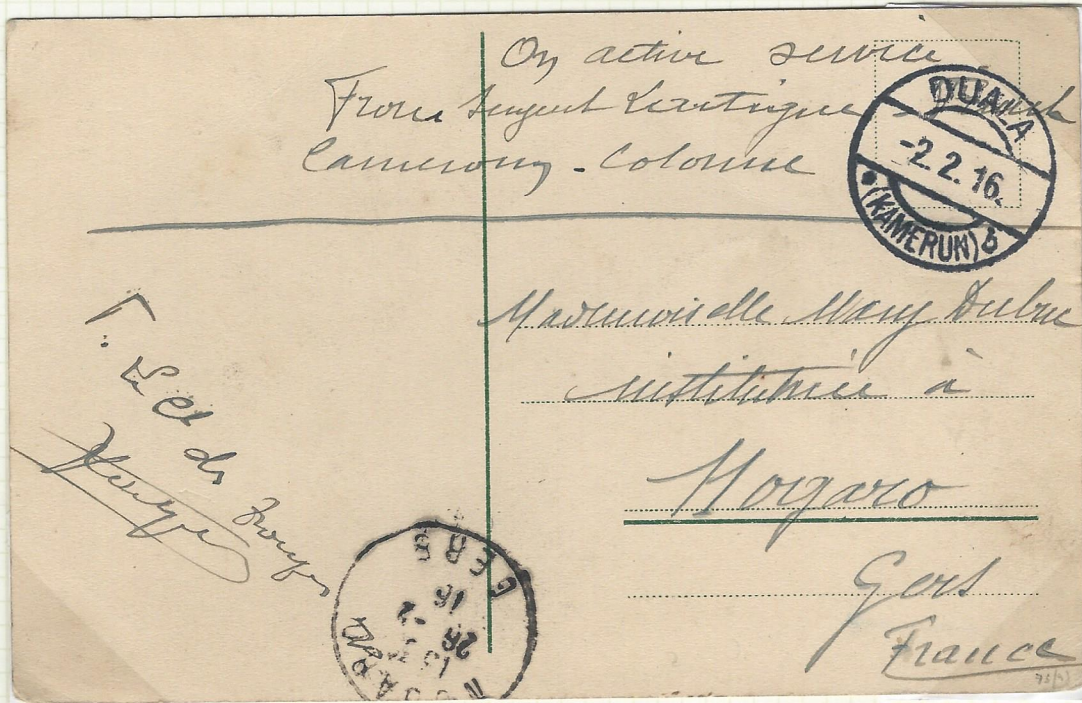 On active service
From Sergent Lartigue French
Cameroons - Colonne
DUALA
-2. 2. 16.
(KAMERUN) b
Mademoiselle Mary Dubuc
institutrice à
Nogaro
Gers
France
T.
Le Ct de Troupes
NOGARO
13
28 -2
16
GERS